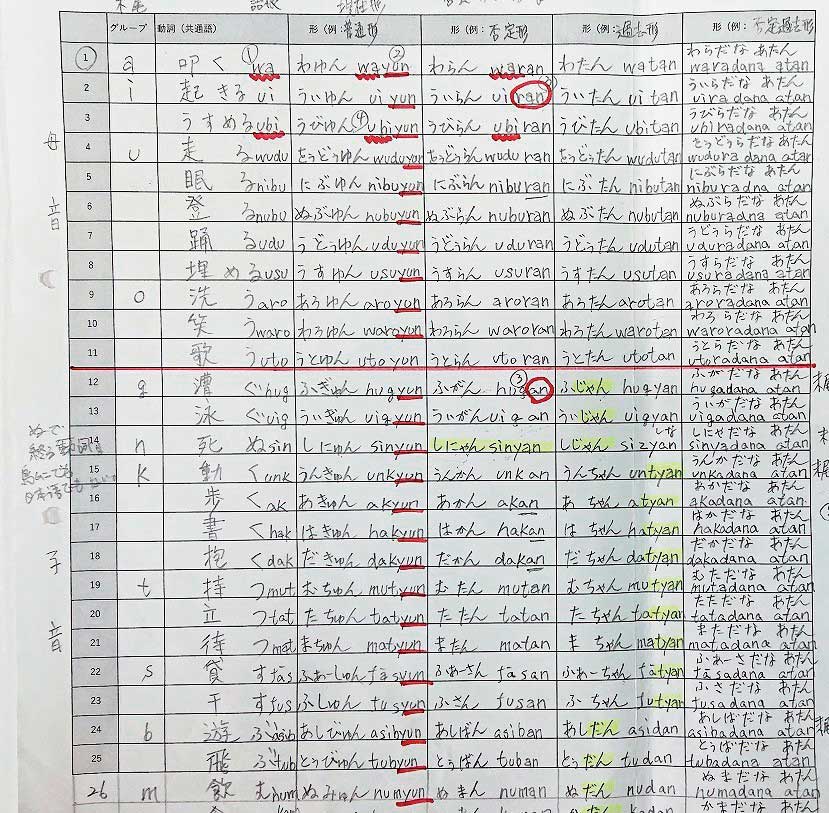 グループ 動詞（共通語） 形（例：普通形 形（例：否定形 形（例：過去形 形（例：否定過去形
母音
子音
① a 叩く ① wa わゆん ② wayun わらん waran わたん watan わらだな あたん waradana atan
2 i 起きる ui ういゆん uiyun ういらん uiran ういたん uitan ういらだな あたん uiradana atan
3 うすめる ubi うびゆん ④ ubiyun うびらん ubiran うびたん ubitan うびらだな あたん ubiradana atan
4 u 走る wudu をぅどぅゆん wuduyun をぅどぅらん wuduran をぅどぅたん wudutan をぅどぅらだな あたん wuduradana atan
5 眠る nibu にぶゆん nibuyun にぶらん niburan にぶたん nibutan にぶらだな あたん niburadna atan
6 登る nubu ぬぶゆん nubuyun ぬぶらん nuburan ぬぶたん nubutan ぬぶらだな あたん nuburadana atan
7 踊る udu うどぅゆん uduyun うどぅらん uduran うどぅたん udutan うどぅらだな あたん uduradana atan
8 埋める usu うすゆん usuyun うすらん usuran うすたん usutan うすらだな あたん usuradana atan
9 o 洗う aro あろゆん aroyun あろらん aroran あろたん arotan あろらだな あたん aroradana atan
10 笑う waro わろゆん waroyun わろらん waroran わろたん warotan わろらだな あたん waroradana atan
11 歌う uto うとゆん utoyun うとらん utoran うとたん utotan うとらだな あたん utoradana atan
12 g 漕ぐ hug ふぎゅん hugyun ふがん ③ hugan ふじゃん hugyan ふがだな あたん hugadana atan
13 泳ぐ uig ういぎゅん uigyun ういがん uigan ういじゃん uigyan ういがだな あたん uigadana atan
14 n 死ぬ sin しにゅん sinyun しにゃん sinyan しじゃん sizyan しにゃだな あたん sinyadana atan
15 k 動く unk うんきゅん unkyun うんかん unkan うんちゃん untyan うんかだな あたん unkadana atan
16 歩く ak あきゅん akyun あかん akan あちゃん atyan あかだな あたん akadana atan
17 書く hak はきゅん hakyun はかん hakan はちゃん hatyan はかだな あたん hakadana atan
18 抱く dak だきゅん dakyun だかん dakan だちゃん datyan だかだな あたん dakadana atan
19 t 持つ mut むちゅん mutyun むたん mutan むちゃん mutyan むただな あたん mutadana atan
20 立つ tat たちゅん tatyun たたん tatan たちゃん tatyan たただな あたん tatadana atan
21 待つ mat まちゅん matyun またん matan まちゃん matyan まただな あたん matadana atan
22 s 貸す fās ふぁーしゅん fāsyun ふぁーさん fāsan ふぁーちゃん fātyan ふぁーさだな あたん fāsadana atan
23 干す fus ふしゅん fusyun ふさん fusan ふーちゃん futyan ふさだな あたん fusadana atan
24 b 遊ぶ asib あしびゅん asibyun あしばん asiban あしだん asidan あしばだな あたん asibadana atan
25 飛ぶ tub とぅびゅん tubyun とぅばん tuban とぅだん tudan とぅばだな あたん tubadana atan
26 m 飲む num ぬみゅん numyun ぬまん numan ぬだん nudan ぬまだな あたん numadana atan